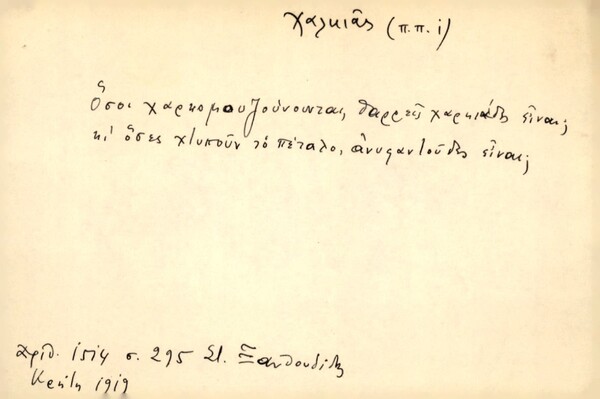 χαλκιᾶς (π.π. i)
Ὅσοι χαρκομουζούνουνται, θαρρεῖς χαρκιάδες εἶναι;
κι' ὅσες χτυποῦν τὸ πέταλο, ἀνυφαντοῦδες εἶναι;
Ἀριθ. 1514 σ. 295 Στ. Ξανθουδίδης
Κρήτη 1919